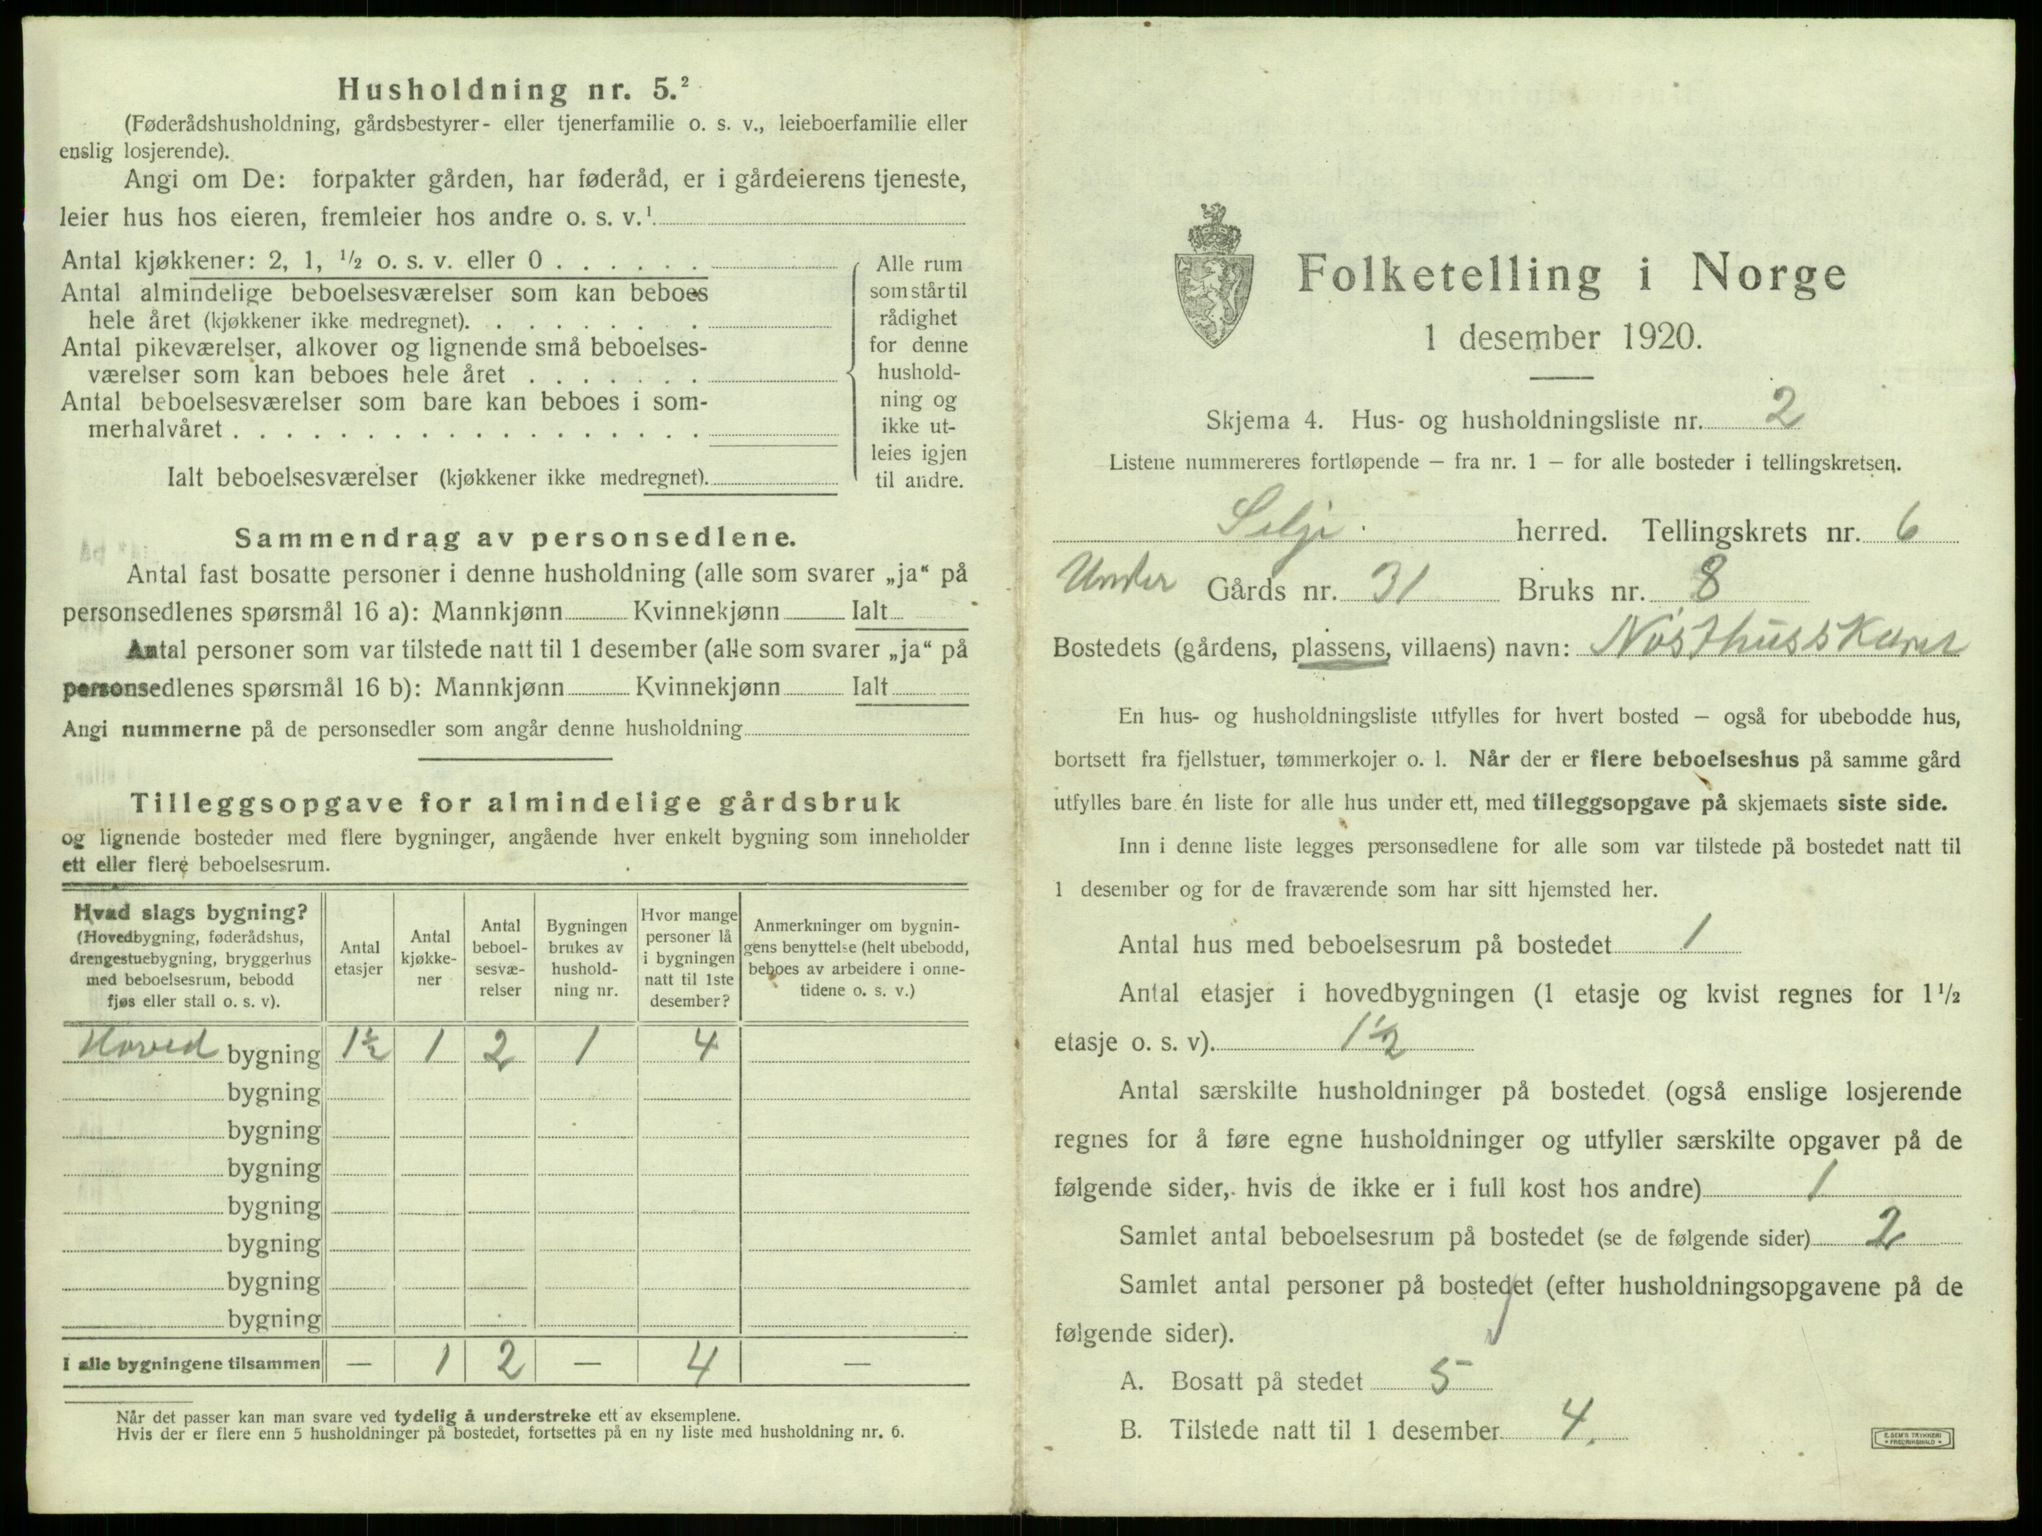 Husholdning nr. 5.²
(Føderådshusholdning, gårdsbestyrer- eller tjenerfamilie o. s. v., leieboerfamilie eller
enslig losjerende).
Angi om De: forpakter gården, har føderåd, er i gårdeierens tjeneste,
leier hus hos eieren, fremleier hos andre o. s. v.¹
Antal kjøkkener: 2, 1, ½ o. s. v. eller 0 . . . . . .
Antal almindelige beboelsesværelser som kan beboes
hele året (kjøkkener ikke medregnet). . . . . . . . .
Antal pikeværelser, alkover og lignende små beboelses-
værelser som kan beboes hele året . . . . . . .
Antal beboelsesværelser som bare kan beboes i som-
merhalvåret . . . . . . . . . . . . . . . . . .
Ialt beboelsesværelser (kjøkkener ikke medregnet).
Alle rum
som står til
rådighet
for denne
hushold-
ning og
ikke ut-
leies igjen
til andre.
Sammendrag av personsedlene.
Antal fast bosatte personer i denne husholdning (alle som svarer „ja“ på
personsedlenes spørsmål 16 a): Mannkjønn Kvinnekjønn Ialt
Antal personer som var tilstede natt til 1 desember (alle som svarer „ja“ på
personsedlenes spørsmål 16 b): Mannkjønn Kvinnekjønn Ialt
Angi nummerne på de personsedler som angår denne husholdning
Tilleggsopgave for almindelige gårdsbruk
og lignende bosteder med flere bygninger, angående hver enkelt bygning som inneholder
ett eller flere beboelsesrum.
Hvad slags bygning?
(Hovedbygning, føderådshus,
drengestuebygning, bryggerhus
med beboelsesrum, bebodd
fjøs eller stall o. s. v).
Antal
etasjer
Antal
kjøkke-
ner
Antal
beboel-
sesvæ-
relser
Bygningen
brukes av
hushold-
ning nr.
Hvor mange
personer lå
i bygningen
natt til 1ste
desember?
Anmerkninger om bygnin-
gens benyttelse (helt ubebodd,
beboes av arbeidere i onne-
tidene o. s. v.)
Hoved bygning 1½ 1 2 1 4
bygning
bygning
bygning
bygning
bygning
bygning
bygning
I alle bygningene tilsammen — 1 2 — 4 —
Når det passer kan man svare ved tydelig å understreke ett av eksemplene.
Hvis der er flere enn 5 husholdninger på bostedet, fortsettes på en ny liste med husholdning nr. 6.
Folketelling i Norge
1 desember 1920.
Skjema 4. Hus- og husholdningsliste nr. 2
Listene nummereres fortløpende – fra nr. 1 – for alle bosteder i tellingskretsen.
Selje herred. Tellingskrets nr. 6
Under Gårds nr. 31 Bruks nr. 8
Bostedets (gårdens, plassens, villaens) navn:
En hus- og husholdningsliste utfylles for hvert bosted – også for ubebodde hus,
bortsett fra fjellstuer, tømmerkojer o. l. Når der er flere beboelseshus på samme gård
utfylles bare én liste for alle hus under ett, med tilleggsopgave på skjemaets siste side.
Inn i denne liste legges personsedlene for alle som var tilstede på bostedet natt til
1 desember og for de fraværende som har sitt hjemsted her.
Antal hus med beboelsesrum på bostedet 1
Antal etasjer i hovedbygningen (1 etasje og kvist regnes for 1½
etasje o. s. v). 1½
Antal særskilte husholdninger på bostedet (også enslige losjerende
regnes for å føre egne husholdninger og utfyller særskilte opgaver på de
følgende sider, hvis de ikke er i full kost hos andre) 1
Samlet antal beboelsesrum på bostedet (se de følgende sider) 2
Samlet antal personer på bostedet (efter husholdningsopgavene på de
følgende sider).
A. Bosatt på stedet 5
B. Tilstede natt til 1 desember 4.
E. SEM'S TRYKKERI
FREDRIKSHALD